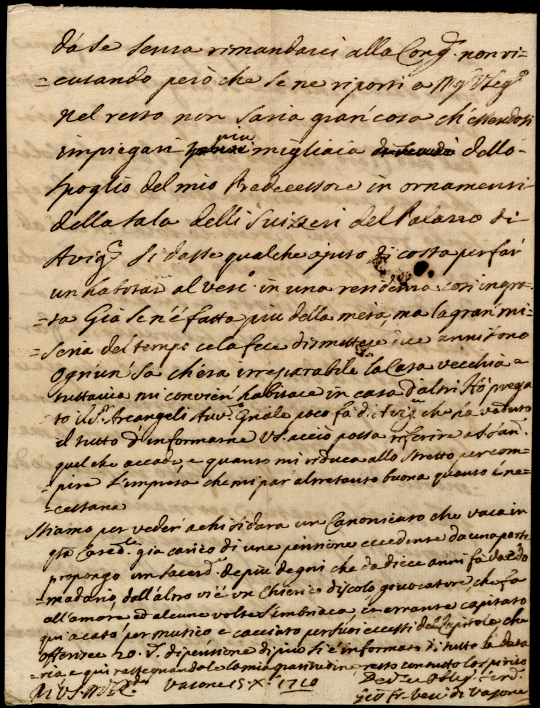 da se senza rimandarci alla Cong.e non ri=
=cusando però che se ne riporti a Mg.r Vleg.o
nel resto non saria gran cosa ch'essendosi
impiegati più migliaia dello
spoglio del mio Predecessore in ornamenti
della sala delli Suizzeri del Palazzo di
Avig.e si dasse qualche ajuto di costa per far
un habitat al Vesc.o in una residenza così ingra=
=ta Già se n'è fatta più della metà, ma la gran mi=
=seria del tempo ce la fece dismettere dice anni sono
Ogn'un sa ch'era irreparabile la Casa vecchia e
tuttavia mi convien habitare in casa d'altri Hò prega=
to il S.r Arcangeli Auv.o G'nale poco fà di Avig.e che ha veduto
il tutto d'informarne VS. acciò possa riferire a
quel che accade, e quanto mi riduca allo stretto per com=
=pire l'impresa che mi par altretanto buona quanto è ne=
=cessaria
Stiamo per veder' a chi si darà un Canonicato che vaca in
q.ta Cated.le già carico di una pensione eccedente da una parte
propongo un sacerd.e de più degni che da diece anni fà
dall'altro vi è un Chierico discolo giuocatore, che fà
all'amore ed alcune volte s'imbriaca,
qui a caso per musico e cacciato per suoi eccessi dal Capitolo che
offerisce 20 di pensione di più si è informato di tutto la Data=
ria e qui rassegnandole la mia gratitudine, resto con tutto lo spirito
Di VS. Ill.ma Vasone 15 X.e 1710 Dev.mo Oblig.mo Serv.e
Gio Fr. Vesc.o di Vasone